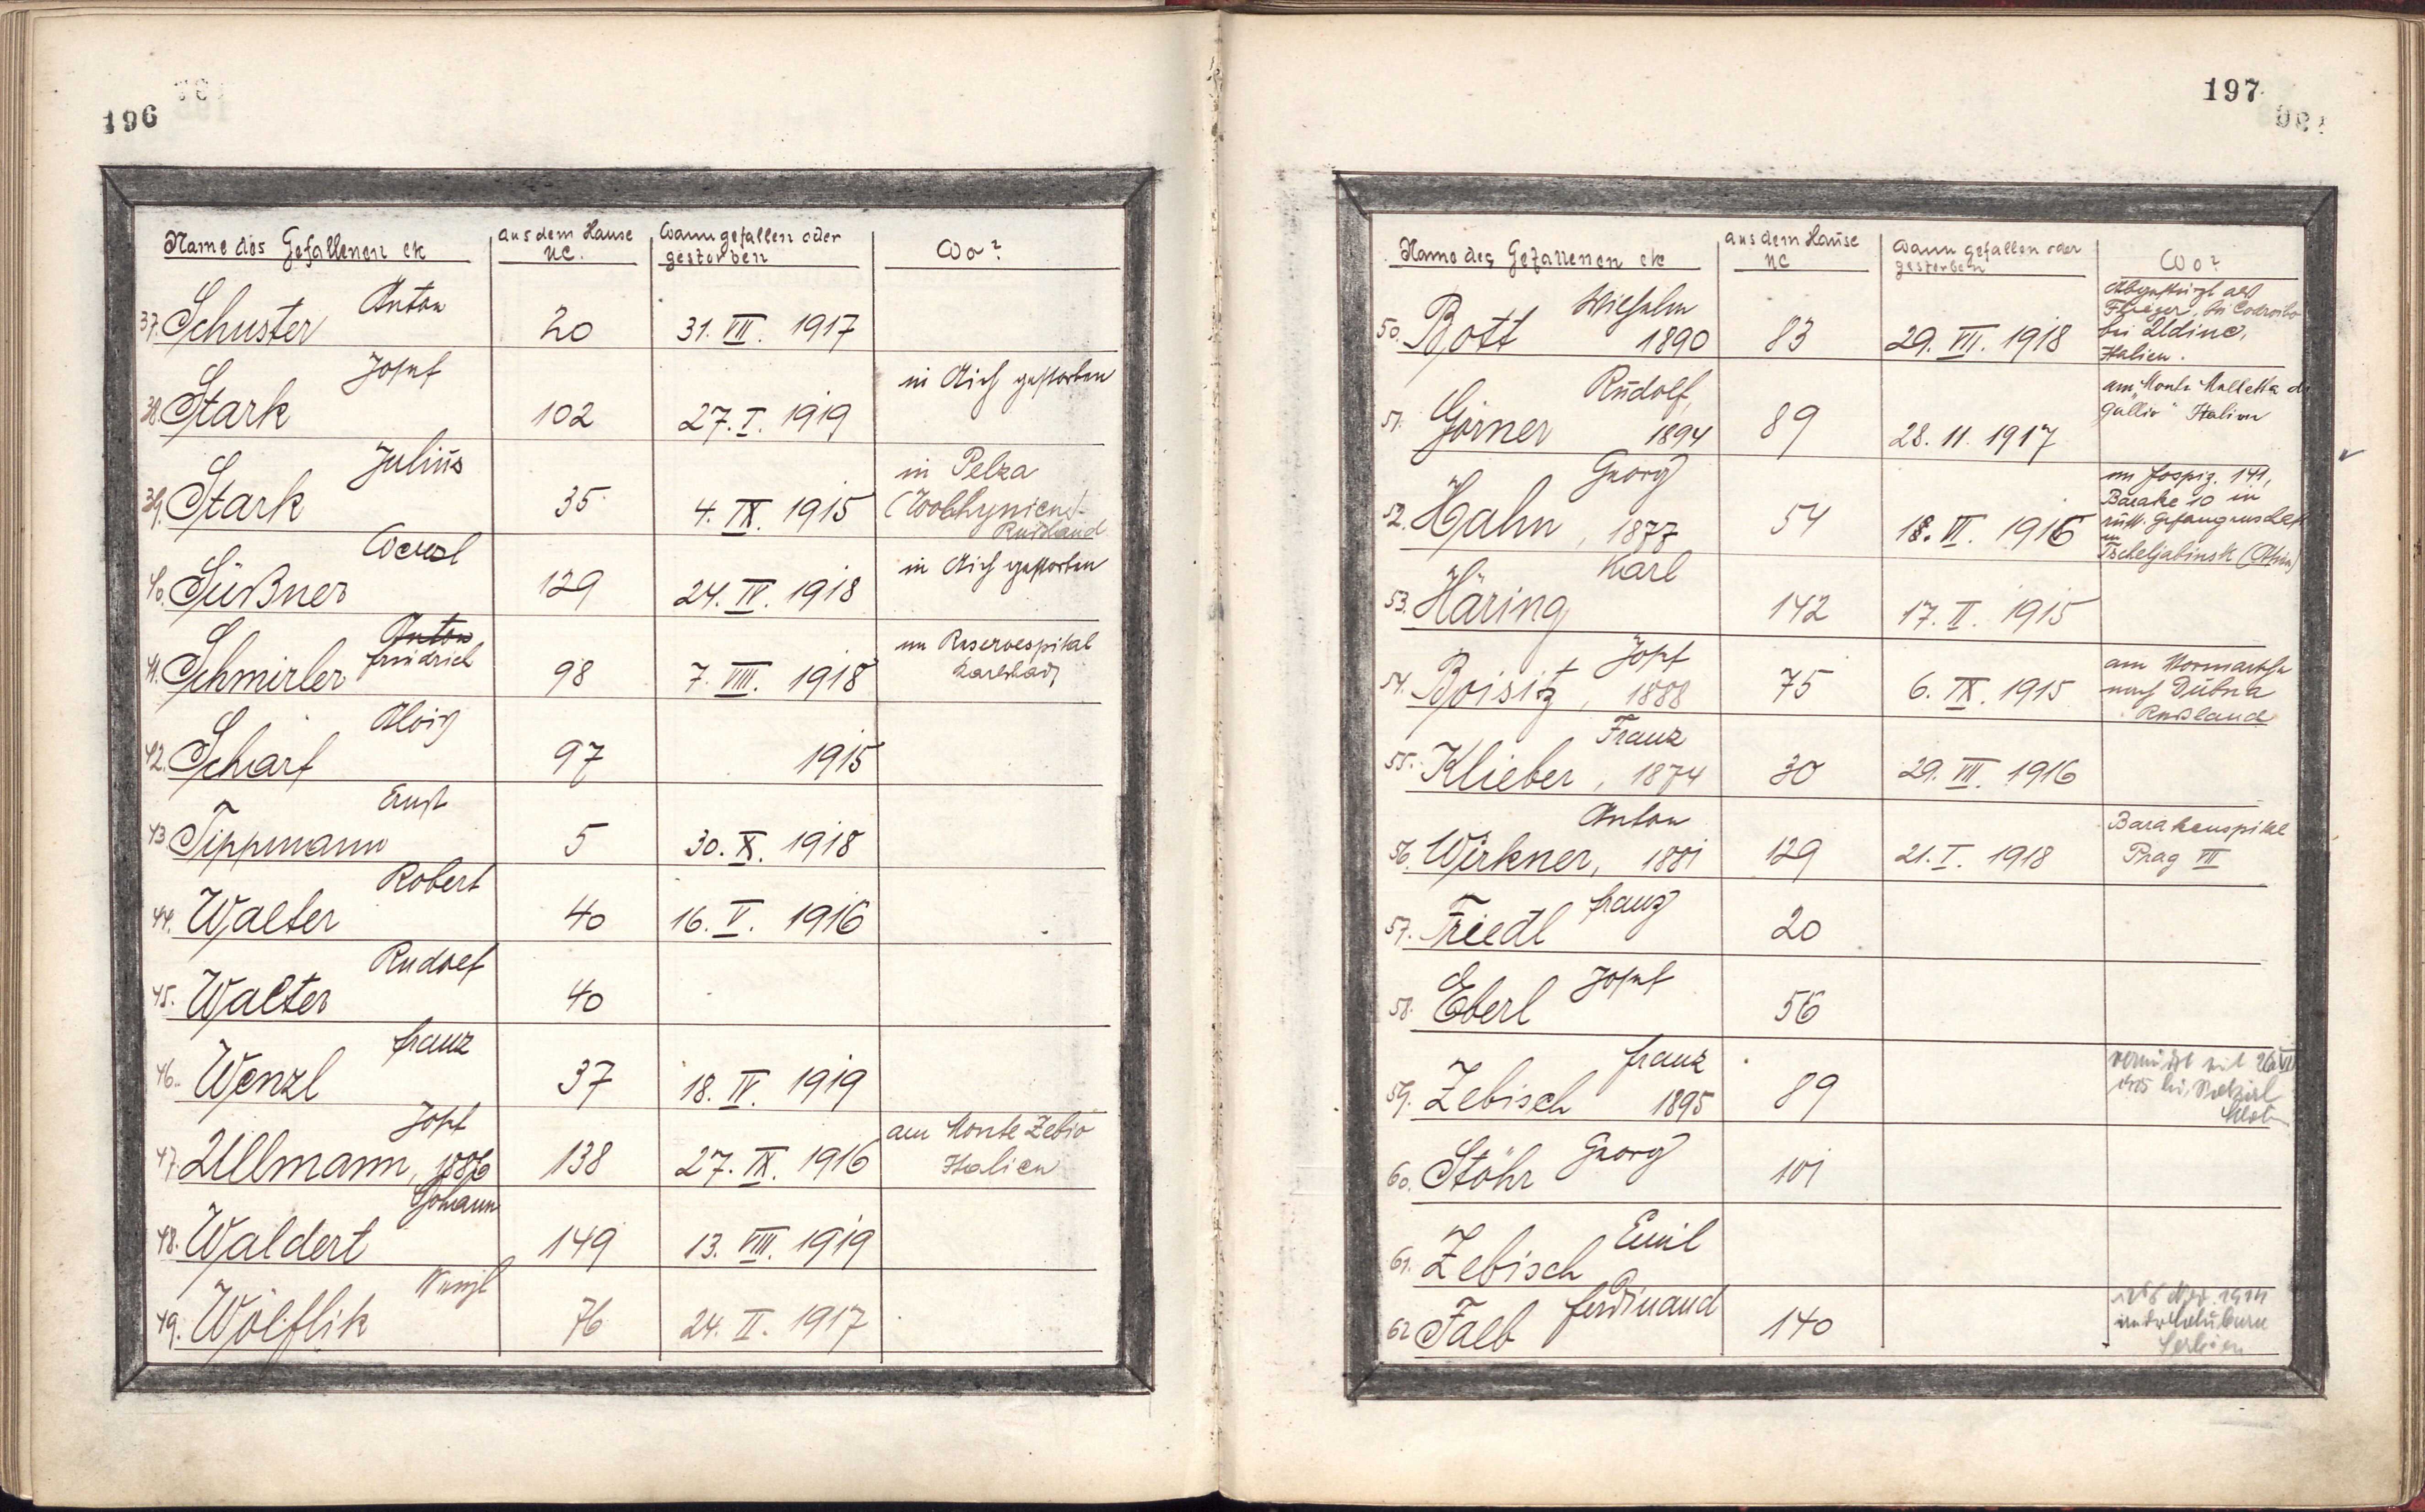 196
Name des Gefallenen etc
aus dem Hause NC.
Wann gefallen oder gestorben
Wo?
37. Schuster Anton 20 31. VII. 1917
38. Stark Josef 102 27. I. 1919 in Aich gestorben
39. Stark Julius 35 4. IX. 1915 in Pelza
(Wolhynien)-
Rußland
40. Süßner Wenzl 129 24. IV. 1918 in Aich gestorben
41. Schmirler Anton
Friedrich 98 7. VIII. 1918 im Reservespital
Karlsbad
42. Scharf Alois 97 1915
43 Tippmann Ernst 5 30. X. 1918
44. Walter Robert 40 16. V. 1916
45. Walter Rudolf 40
46. Wenzl Franz 37 18. IV. 1919
47. Ullmann, 1886 Josef 138 27. IX. 1916 am Monte Zebio
Italien
48. Waldert Johann 149 13. VIII. 1919
49. Wölflik Wenzl 76 24. II. 1917
197
Name des Gefallenen etc
aus dem Hause NC
Wann gefallen oder gestorben
Wo?
50. Bott Wilhelm 1890 83 29. VII. 1918 Abgestürzt als
Flieger, bei Codroibo
bei Udine,
Italien.
51. Görner Rudolf, 1894 89 28. 11. 1917 am Monte Melletta di
Gallio Italien
52. Hahn, 1877 Georg 54 18. VI. 1916 im Hospiz. 141,
Barake 10 in
russ. Gefangenschaft
in
Tscheljabinsk
53. Häring Karl 142 17. II. 1915
54. Boisitz, 1888 Josef 75 6. IX. 1915 am Vormarsche
nach Dubna
Rußland
55. Klieber, 1874 Franz 30 29. VII. 1916
56. Wirkner, 1881 Anton 129 21. I. 1918 Barakenspital
Prag VII
57. Friedl Franz 20
58. Eberl Josef 56
59. Zebisch Franz 1895 89 vermißt seit 26. VII
1915 bei
60. Stöhr Georg 101
61. Zebisch Emil
62 Falb Ferdinand 140 1914
Serbien